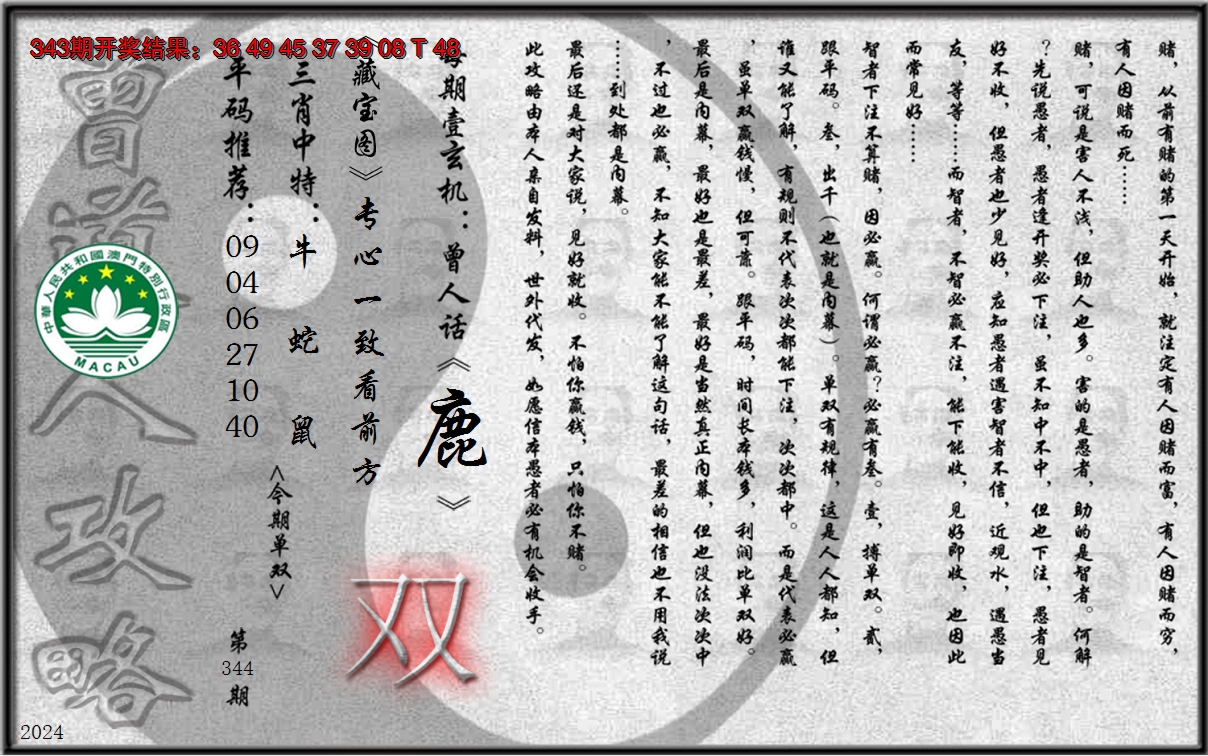 343期开奖结果：36 49 45 37 39 08 T 48
赌，从前有赌的第一天开始，就注定有人因赌而富，有人因赌而穷，
有人因赌而死……
赌，可说是害人不浅，但助人也多。害的是愚者，助的是智者。何解
？先说愚者，愚者逢开奖必下注，虽不知中不中，但也下注，愚者见
好不收，但愚者也少见好，应知愚者遇害智者不信，近观水，遇愚当
友，等等……而智者，不智必赢不注，能下能收，见好即收，也因此
而常见好……
智者下注不算赌，因必赢。何谓必赢？必赢有叁。壹，搏单双。贰，
跟平码。叁，出千（也就是内幕）。单双有规律，这是人人都知，但
谁又能了解，有规则不代表次次都能下注，次次都中。而是代表必赢
，虽单双赢钱慢，但可靠。跟平码，时间长本钱多，利润比单双好。
最后是内幕，最好也是最差，最好是当然真正内幕，但也没法次次中
，不过也必赢，不知大家能不能了解这句话，最差的相信也不用我说
……到处都是内幕。
最后还是对大家说，见好就收。不怕你赢钱，只怕你不赌。
此攻略由本人亲自发料，世外代发，如愿信本愚者必有机会收手。
每期壹玄机：曾人话《鹿》
《藏宝图》专心一致看前方
双
三肖中特：牛 蛇 鼠
<今期单双>
平码推荐：09 04 06 27 10 40
第344期
曾道人攻略
中華人民共和國澳門特別行政區
MACAU
2024